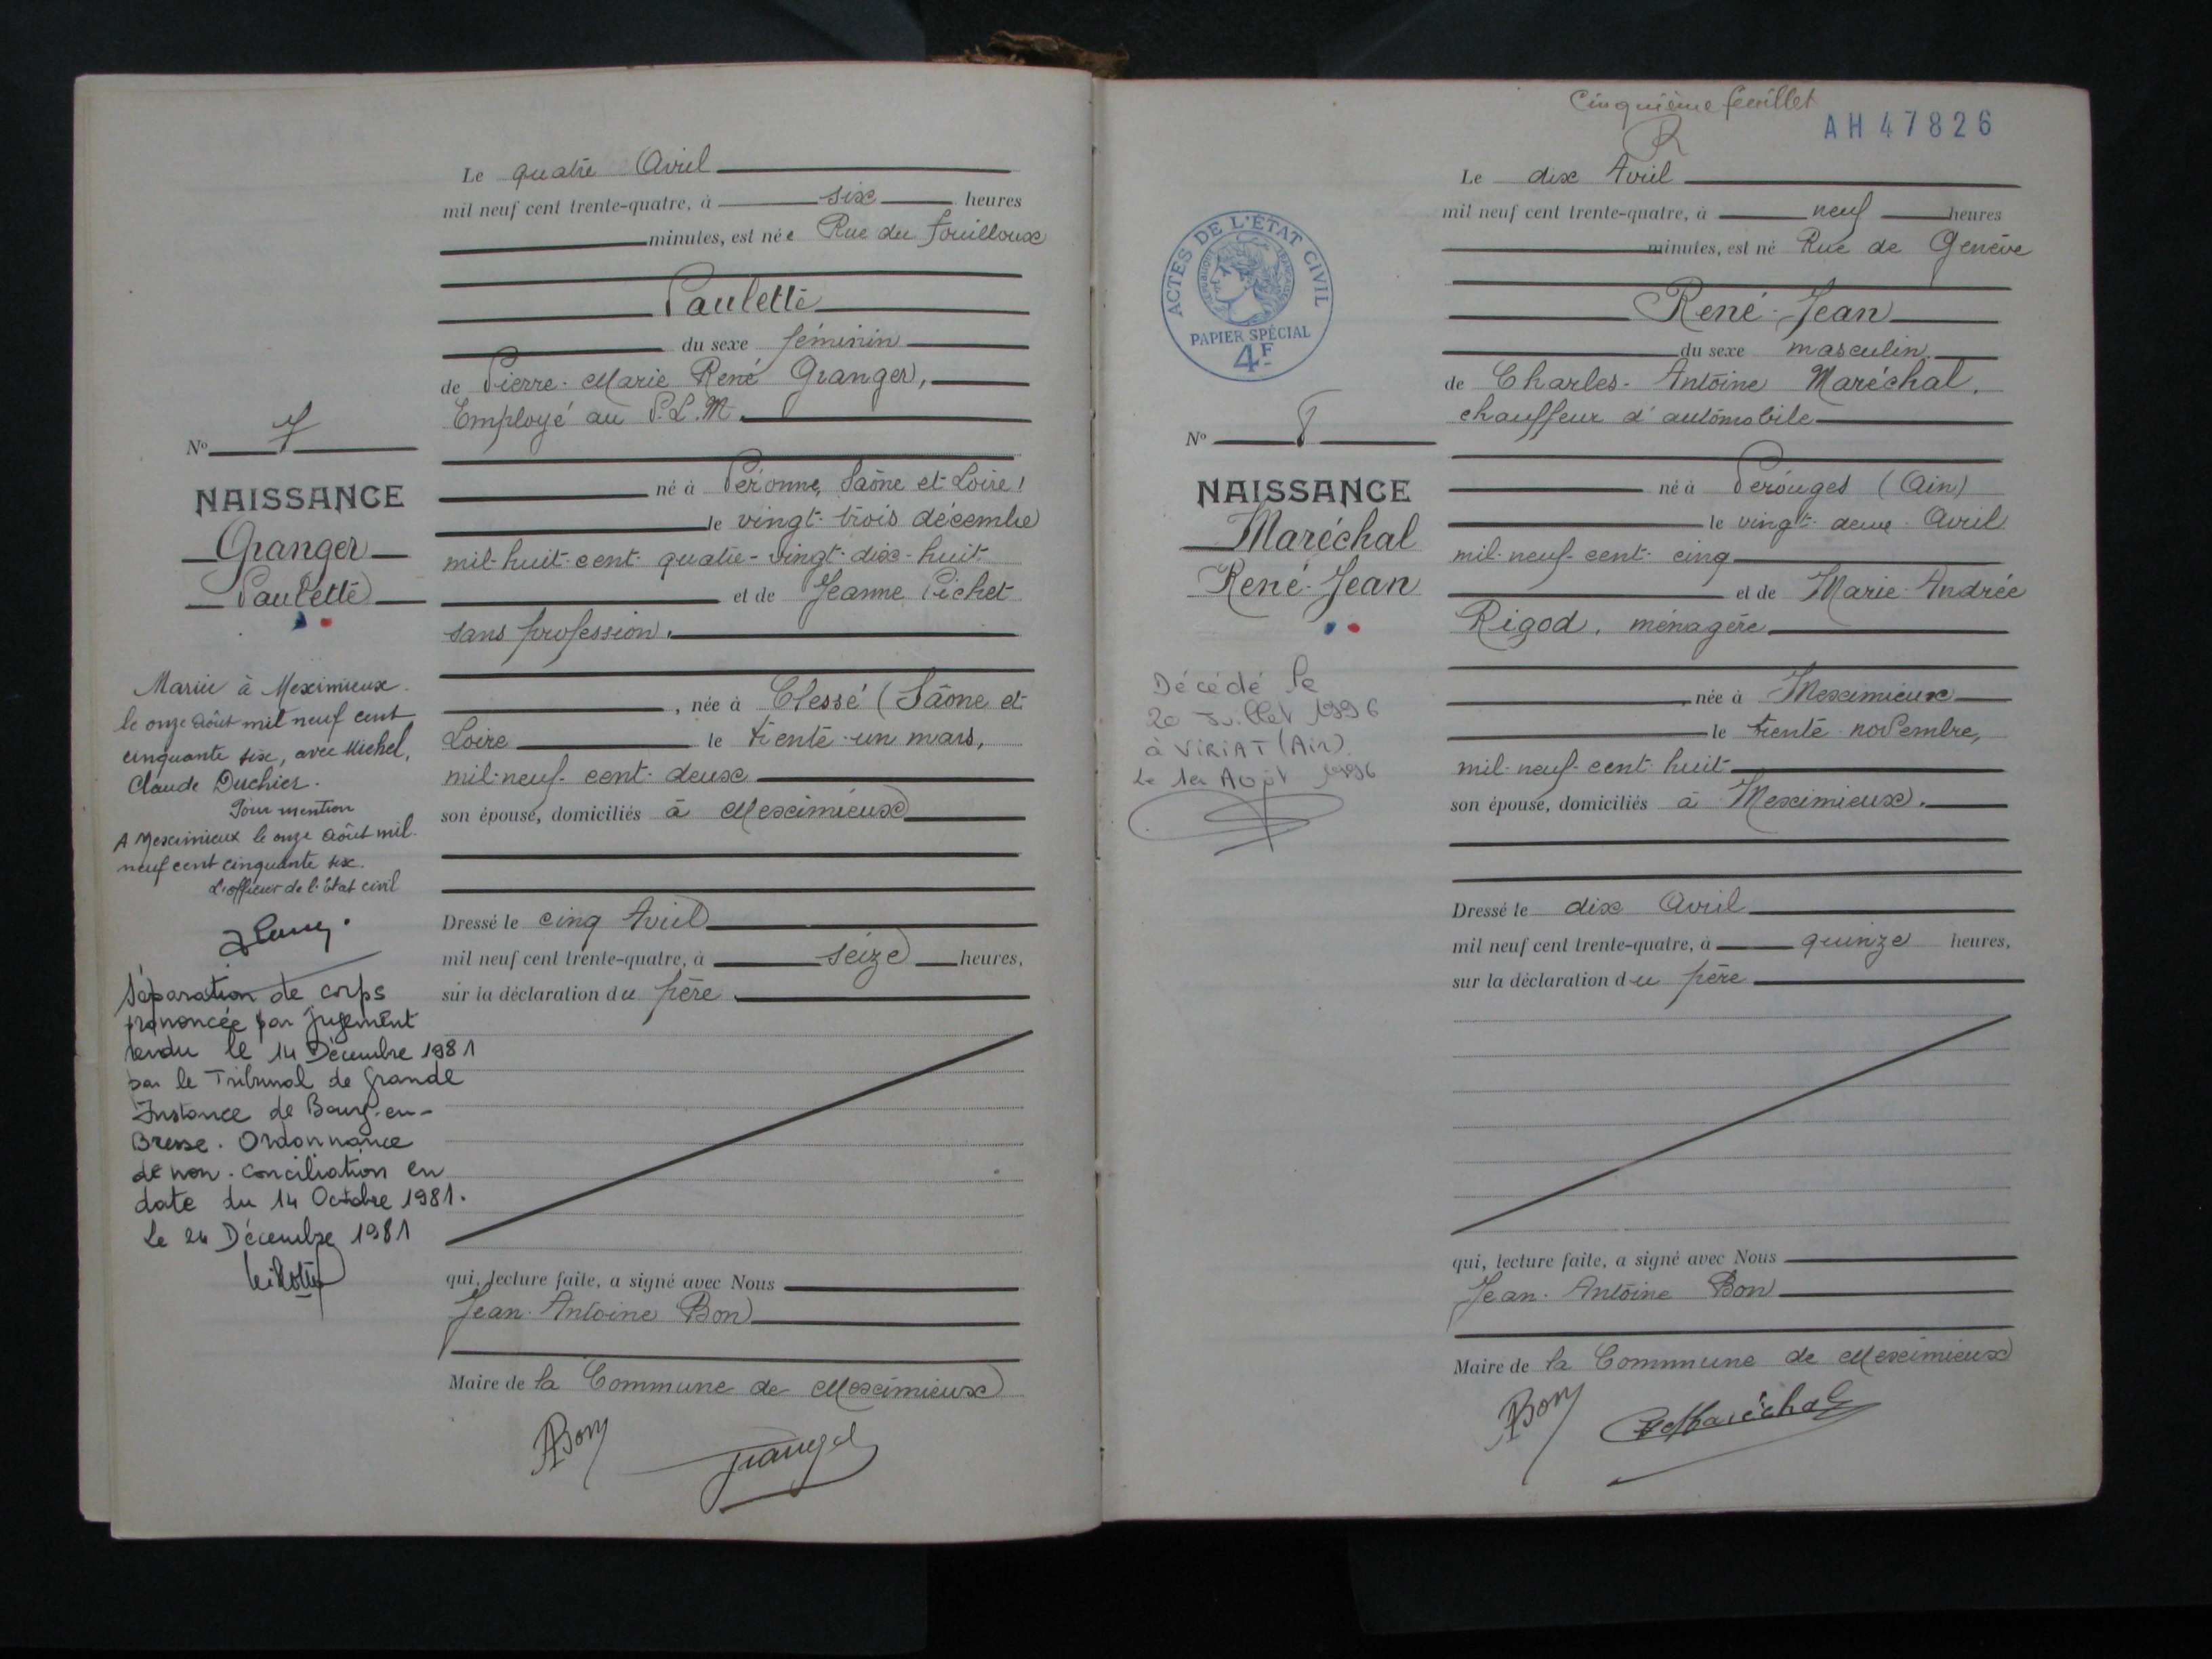 Le quatre Avril
mil neuf cent trente-quatre, à six heures
minutes, est née Rue du Fouilloux
Paulette
du sexe féminin
de Pierre-Marie René Granger,
Employé au P.L.M.
né à Péronne, Saône et Loire,
le vingt-trois décembre
mil-huit-cent-quatre-vingt-dix-huit
et de Jeanne Pichet
sans profession.
, née à Clessé (Saône et
Loire le trente-un mars,
mil-neuf-cent-deux
son épouse, domiciliés à Meximieux
Dressé le cinq Avril
mil neuf cent trente-quatre, à seize heures,
sur la déclaration du père.
qui, lecture faite, a signé avec Nous
Jean-Antoine Bon
Maire de la Commune de Meximieux
ABon Granger
No 7
NAISSANCE
Granger
Paulette
Mariée à Meximieux.
le onze août mil neuf cent
cinquante six, avec Michel,
Claude Duchier.
Pour mention
A Meximieux le onze août mil
neuf cent cinquante six.
L'officier de l'Etat civil
Séparation de corps
prononcée par jugement
rendu le 14 Décembre 1981
par le Tribunal de Grande
Instance de Bourg-en-
Bresse. Ordonnance
de non-conciliation en
date du 14 Octobre 1981.
Le 24 Décembre 1981
Cinquième feuillet
AH47826
ACTES DE L'ÉTAT CIVIL
PAPIER SPÉCIAL
4F
Le dix Avril
mil neuf cent trente-quatre, à neuf heures
minutes, est né Rue de Genève
René-Jean
du sexe masculin
de Charles-Antoine Maréchal,
chauffeur d'automobile
né à Pérouges (Ain)
le vingt-deux Avril
mil-neuf-cent-cinq
et de Marie-Andrée
Rigod, ménagère
, née à Meximieux
le trente novembre,
mil-neuf-cent-huit
son épouse, domiciliés à Meximieux.
Dressé le dix Avril
mil neuf cent trente-quatre, à quinze heures,
sur la déclaration du père
qui, lecture faite, a signé avec Nous
Jean-Antoine Bon
Maire de la Commune de Meximieux
ABon Maréchal
No 8
NAISSANCE
Maréchal
René-Jean
Décédé le
20 Juillet 1996
à VIRIAT (Ain)
Le 1er Août 1996